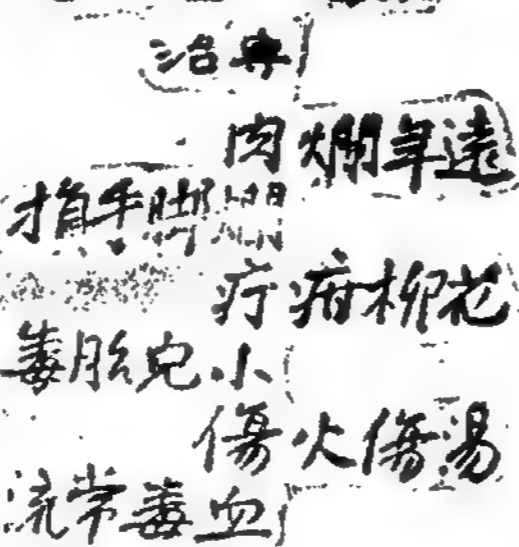 專治
遠年爛肉
脚手指
花柳疳疔
小兒胎毒
湯傷火傷
血毒常流